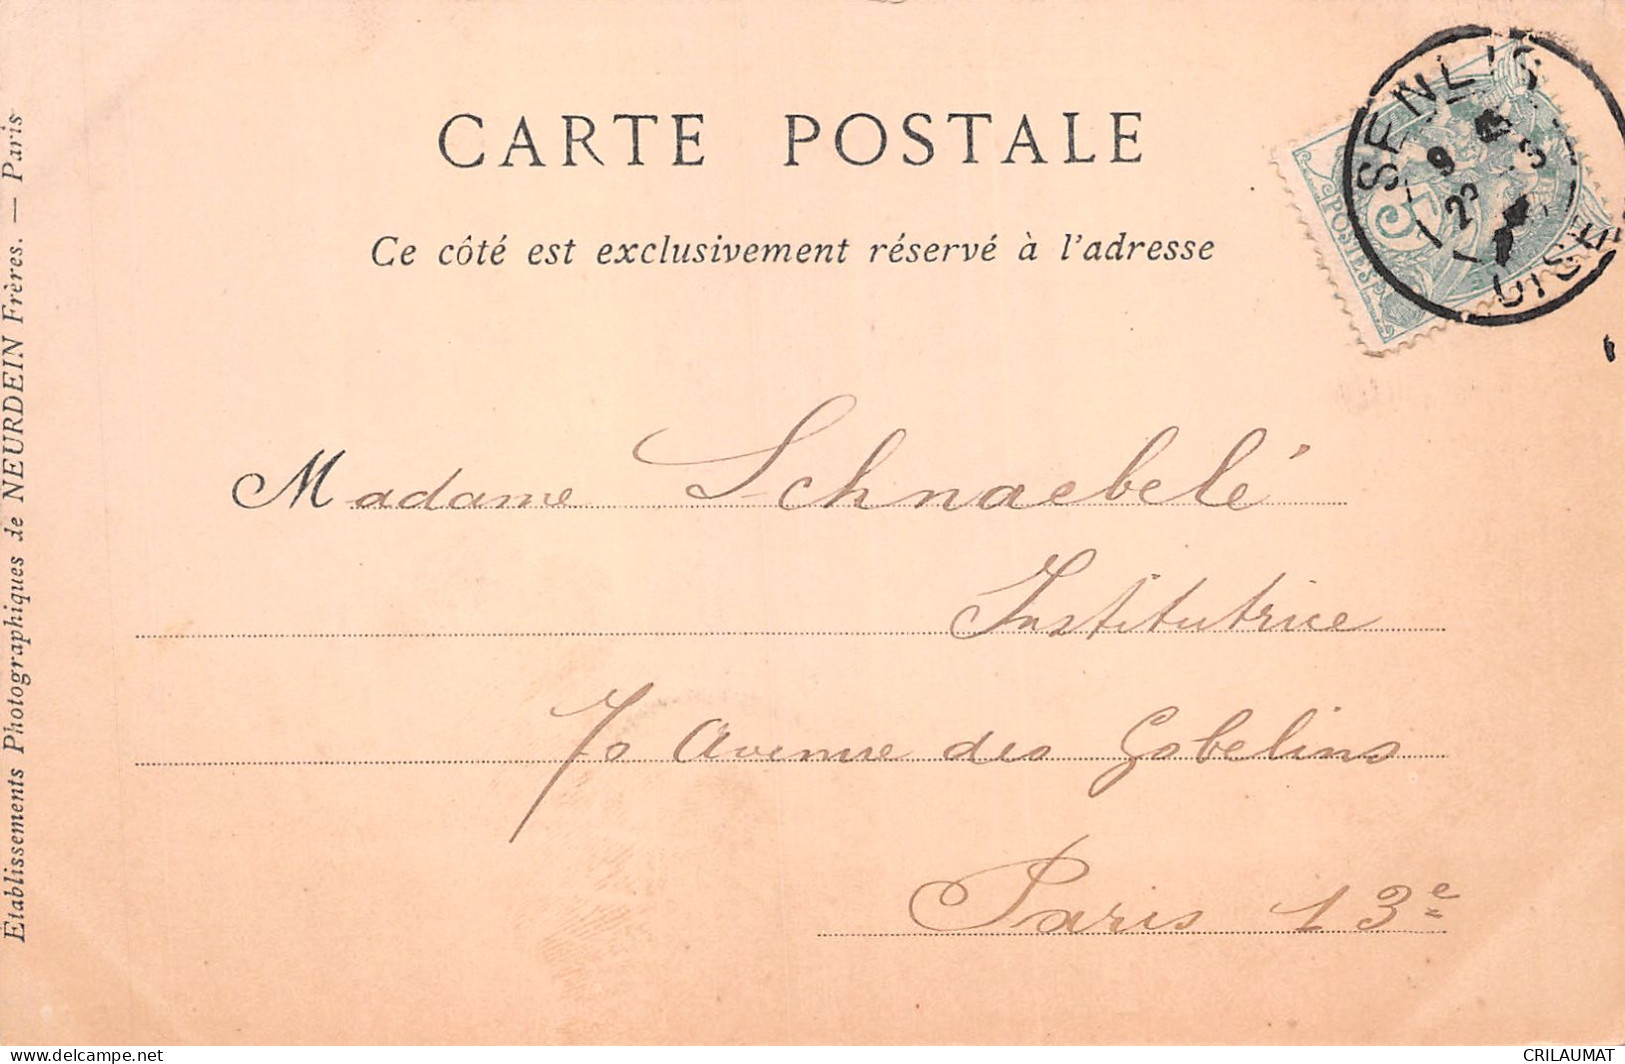 CARTE POSTALE
Ce côté est exclusivement réservé à l'adresse
SENLIS
OISE
5
POSTES
Madame Schnaebelé
Institutrice
70 avenue des Gobelins
Paris 13e
Établissements Photographiques de NEURDEIN Frères. — Paris
www.delcampe.net
CRILAUMAT